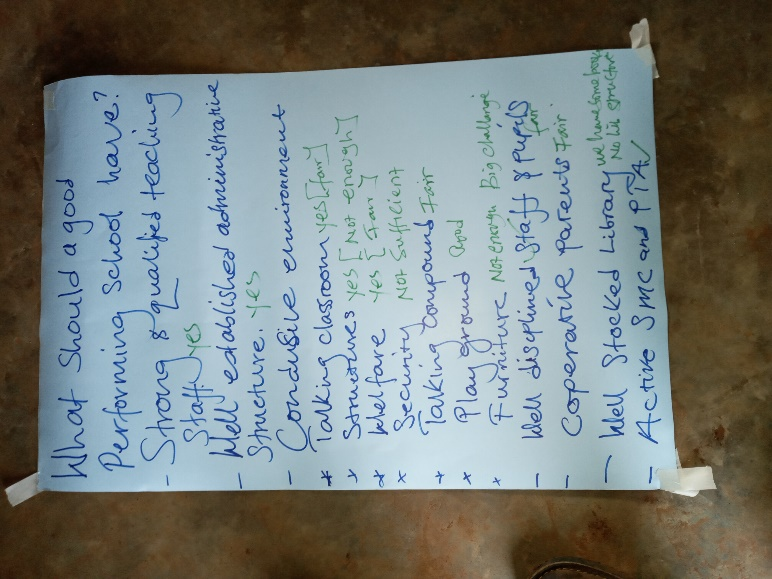 What Should a good
Performing School have?
- Strong & qualified teaching
Staff. Yes
- Well established administrative
Structure. Yes
- Conducive environment
* Talking classroom yes [fair]
* Structures yes [Not enough]
* Welfare yes [Fair]
* Security Not Sufficient
* Talking Compound Fair
* Play ground Good
* Furniture Not enough Big challenge
- Well disciplined Staff & Pupils fair
- Coperative parents Fair
- Well Stocked Library we have some books
No Lib structure
- Active SMC and PTA ✓